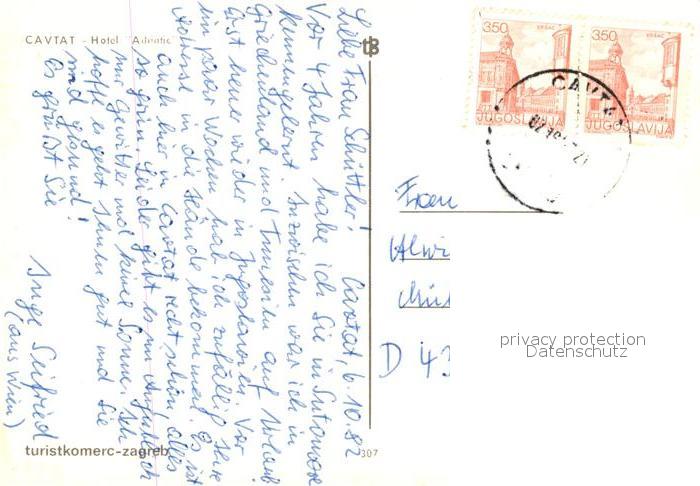 CAVTAT - Hotel "Adriatic"
Liebe Frau Schüttler! Cavtat, 6.10.82
Vor 4 Jahren habe ich Sie in Sutomore
kennengelernt. Inzwischen war ich in
Griechenland und Tunesien auf Urlaub
erst heuer wieder in Jugoslawien. Vor
ein paar Wochen hab ich zufällig Ihre
Adresse in die Hände bekommen. Es ist
auch hier in Cavtat recht schön, alles
so grün. Leider gibt es im Augenblick
nur Gewitter und keine Sonne. Ich
hoffe es geht Ihnen gut und Sie
sind gesund!
Es grüßt Sie
Inge Seifried
(aus Wien)
turistkomerc-zagreb
307
tz
350
VRŠAC
JUGOSLAVIJA
350
VRŠAC
JUGOSLAVIJA
CAVTA
Frau
D 43
privacy protection
Datenschutz